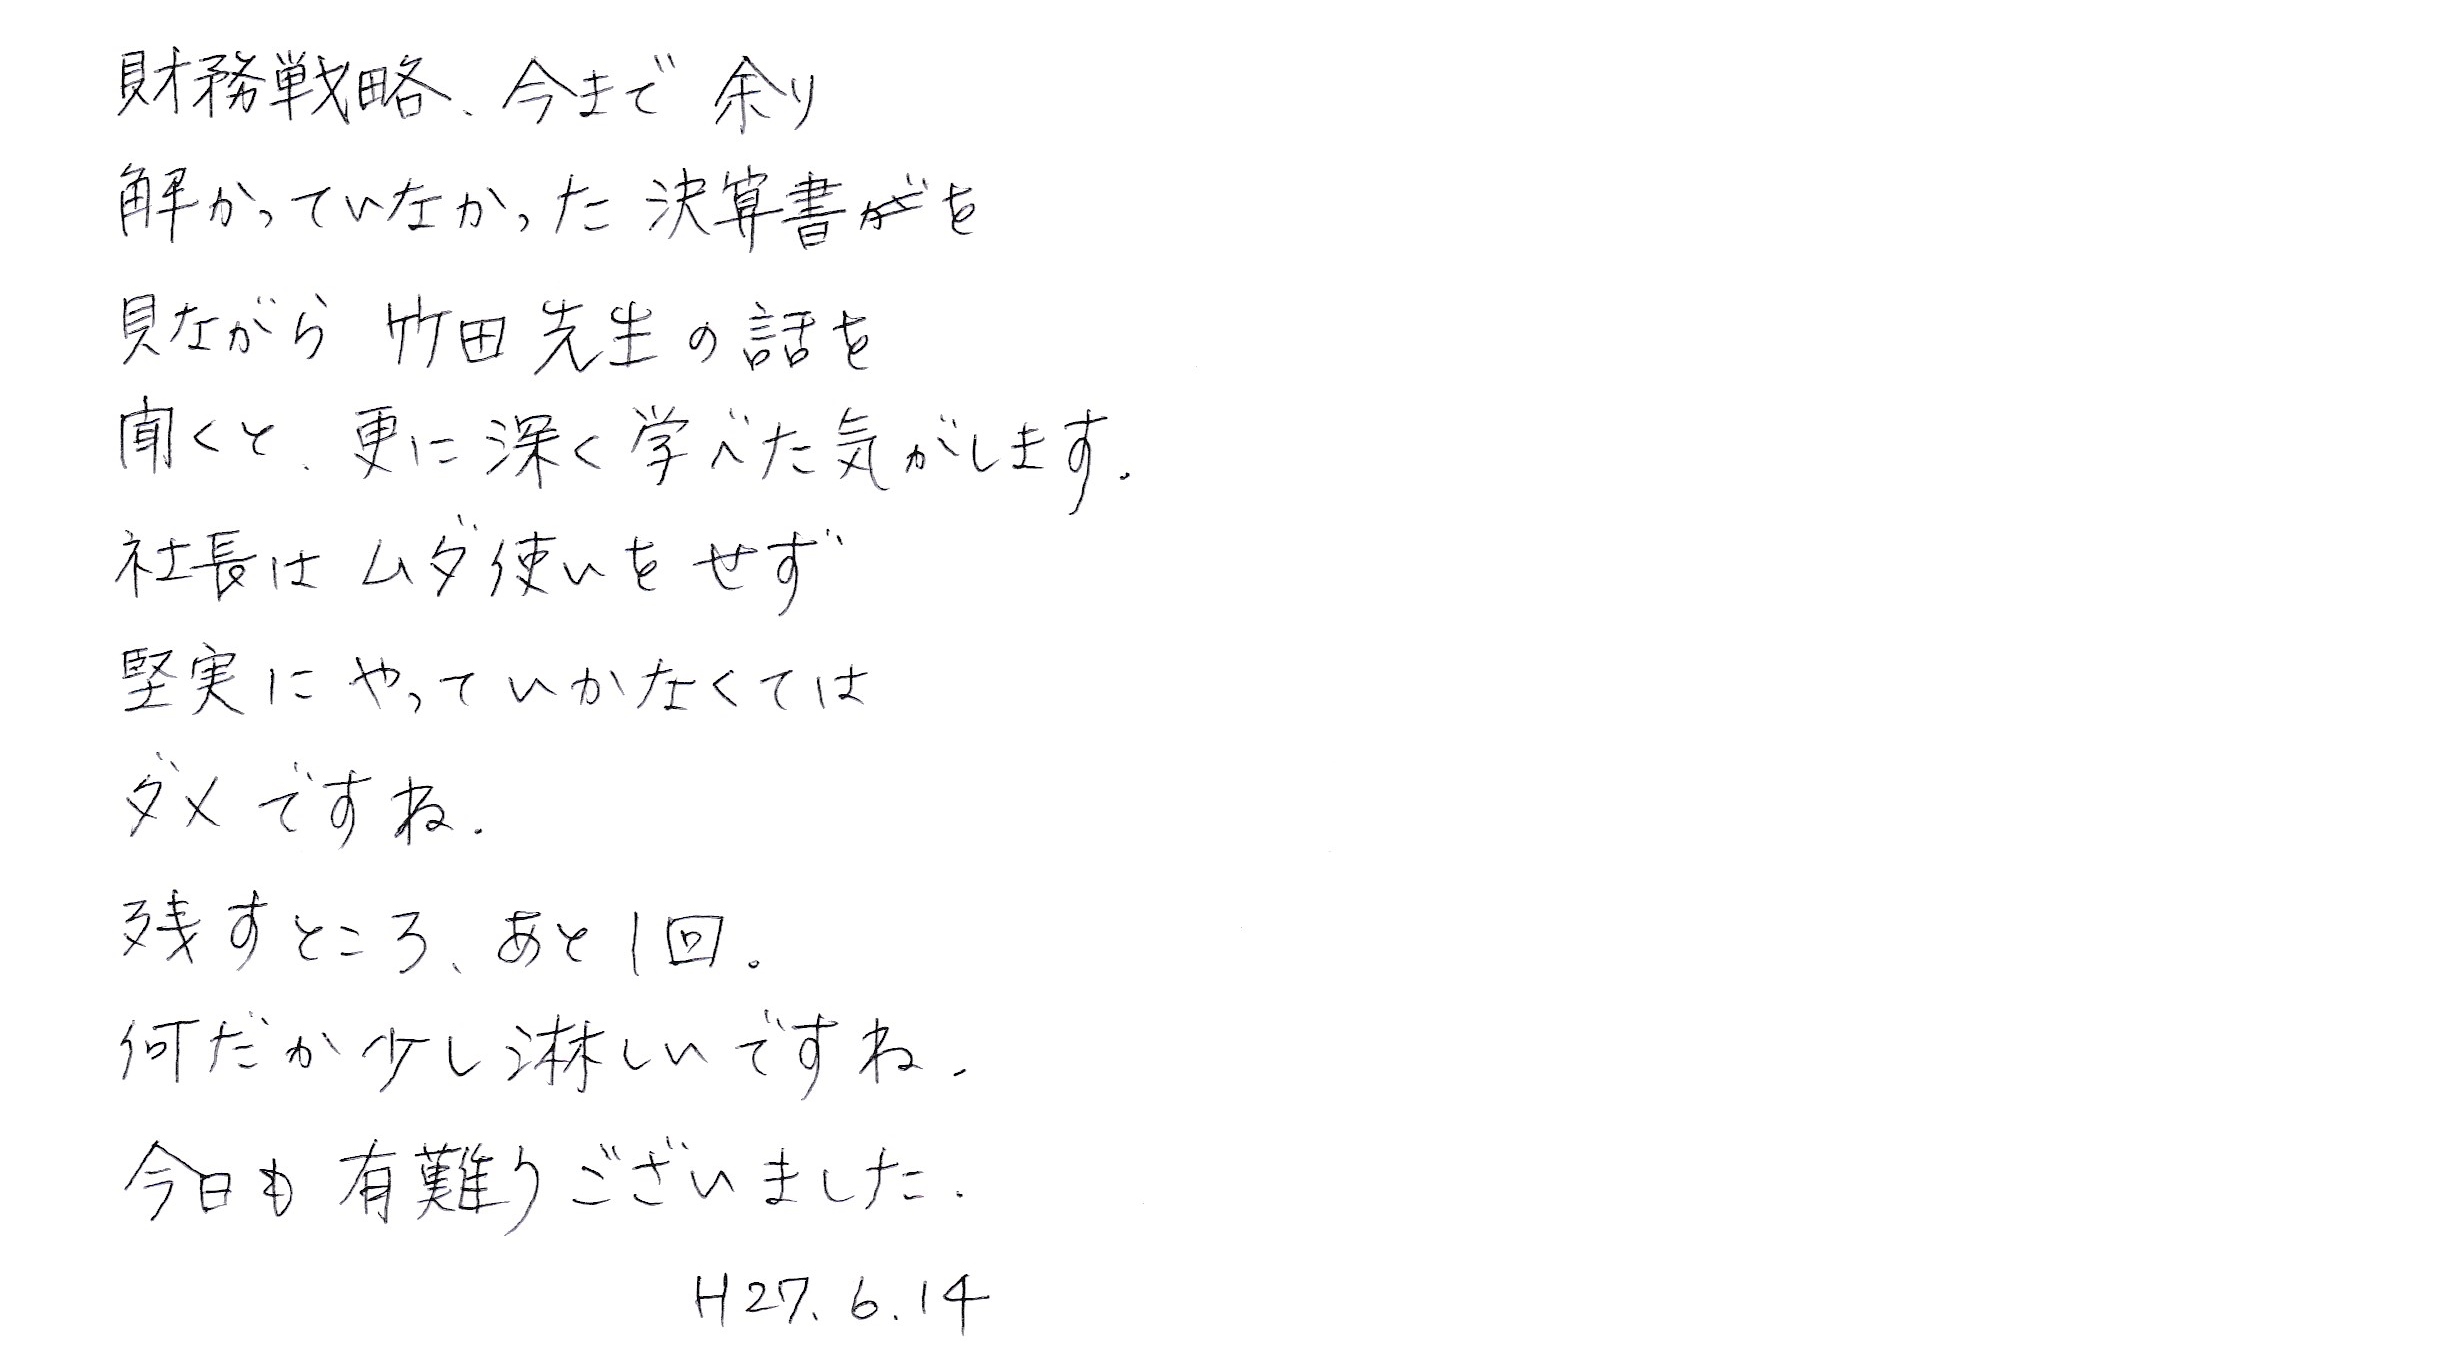 財務戦略、今まで 余り
解かっていなかった 決算書を
見ながら 竹田先生の話を
聞くと、更に深く学べた気がします.
社長は ムダ使いをせず
堅実に やっていかなくては
ダメですね.
残すところ、あと1回。
何だか少し淋しいですね.
今日も 有難うございました.
H27.6.14